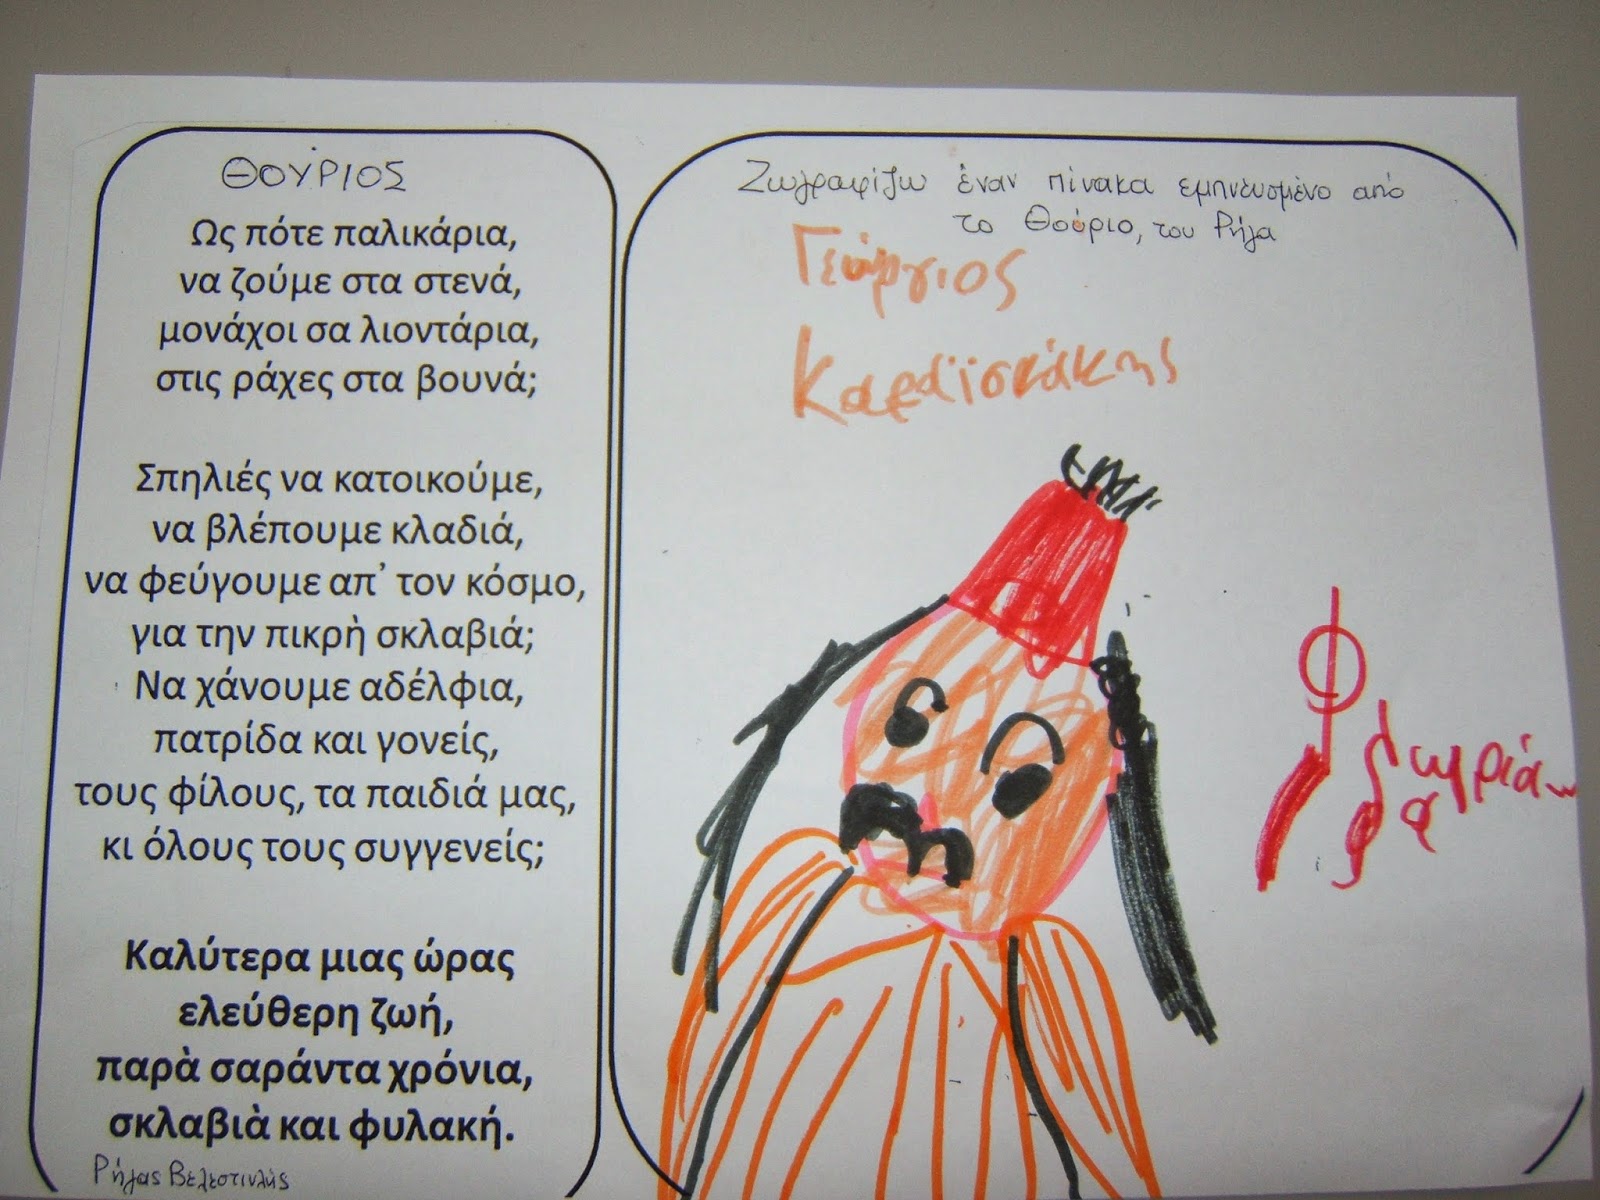 ΘΟΎΡΙΟΣ
Ως πότε παλικάρια,
να ζούμε στα στενά,
μονάχοι σα λιοντάρια,
στις ράχες στα βουνά;
Σπηλιές να κατοικούμε,
να βλέπουμε κλαδιά,
να φεύγουμε απ᾿ τον κόσμο,
για την πικρὴ σκλαβιά;
Να χάνουμε αδέλφια,
πατρίδα και γονείς,
τους φίλους, τα παιδιά μας,
κι όλους τους συγγενείς;
Καλύτερα μιας ώρας
ελεύθερη ζωή,
παρὰ σαράντα χρόνια,
σκλαβιὰ και φυλακή.
Ρήγας Βελεστινλής
Ζωγραφίζω έναν πίνακα εμπνευσμένο από
το Θούριο, του Ρήγα
Γεώργιος
Καραϊσκάκης